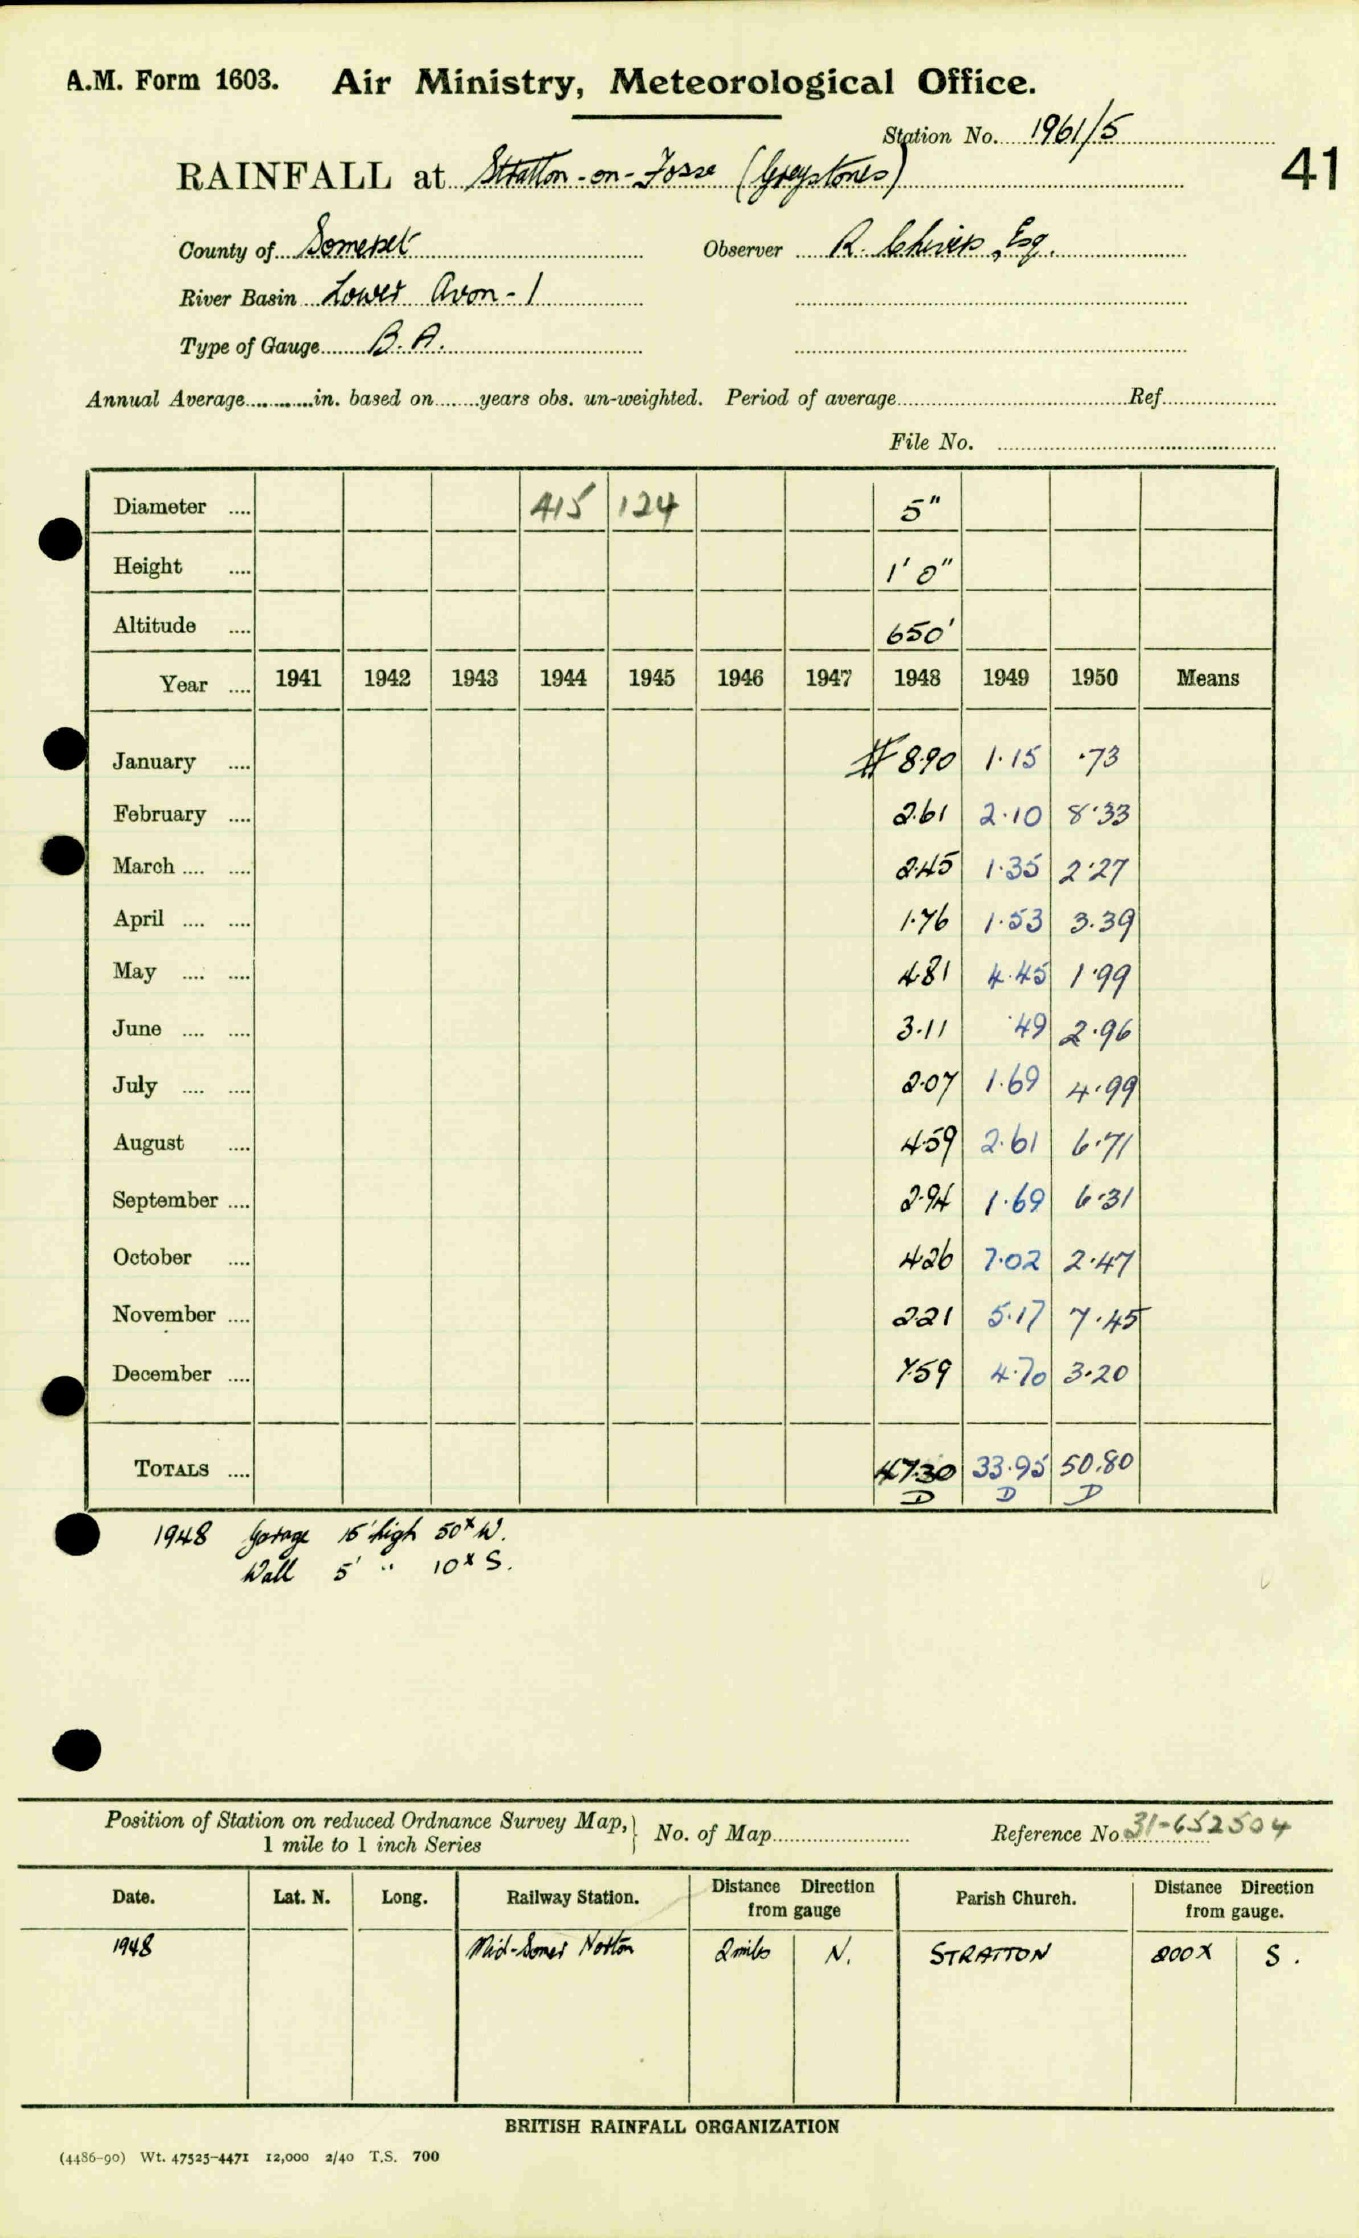 A.M. Form 1603. Air Ministry, Meteorological Office.
Station No. 1961/5
41
RAINFALL at Stratton-on-Fosse (Greystones)
County of Somerset Observer R. Chivers, Esq.
River Basin Lower Avon - 1
Type of Gauge B.A.
Annual Average............in. based on........years obs. un-weighted. Period of average.................... Ref....................
File No. ....................
Diameter .... 415 124 5"
Height .... 1' 0"
Altitude .... 650'
Year .... 1941 1942 1943 1944 1945 1946 1947 1948 1949 1950 Means
January .... # 8.90 1.15 .73
February .... 2.61 2.10 8.33
March .... .... 2.45 1.35 2.27
April .... .... 1.76 1.53 3.39
May .... .... 4.81 4.45 1.99
June .... .... 3.11 .49 2.96
July .... .... 2.07 1.69 4.99
August .... 4.59 2.61 6.71
September .... 2.94 1.69 6.31
October .... 4.26 7.02 2.47
November .... 2.21 5.17 7.45
December .... 7.59 4.70 3.20
TOTALS .... 47.30 33.95 50.80
D D D
1948 Garage 15' high 50x W.
Wall 5' " 10x S.
Position of Station on reduced Ordnance Survey Map, 1 mile to 1 inch Series } No. of Map.................... Reference No 31-652504
Date. Lat. N. Long. Railway Station. Distance Direction from gauge Parish Church. Distance Direction from gauge.
1948 Mid-Somer Norton 2 miles N. STRATTON 200x S.
BRITISH RAINFALL ORGANIZATION
(4486-90) Wt. 47525-4471 12,000 2/40 T.S. 700